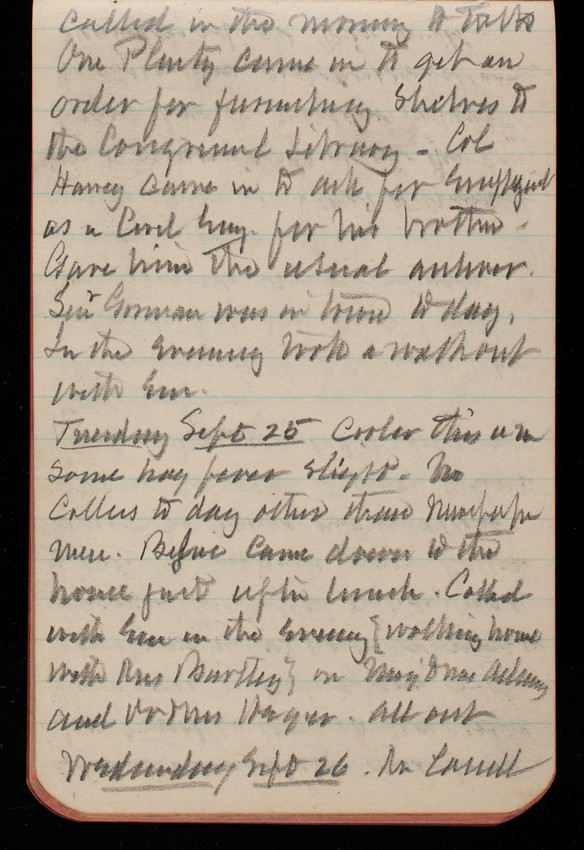 called in the morning to talk
One Plenty came in to get an
order for furnishing Shelves to
the Congressnl Library - Col
Harvey came in to ask for
as a Civil Eng. for his brother -
Gave him the usual answer.
Sen Gorman was in town to day.
In the evening took a walk out
with Em.
Tuesday Sept 25 Cooler this a m
some hay fever slight. No
Callers to day other than Newspaper
men. Before came down to the
house just after lunch. Called
with Em in the evening [walking home
with Mrs ] on Maj & Mrs Adams
and Dr & Mrs Hager. All out
Wednesday Sept 26. Mr